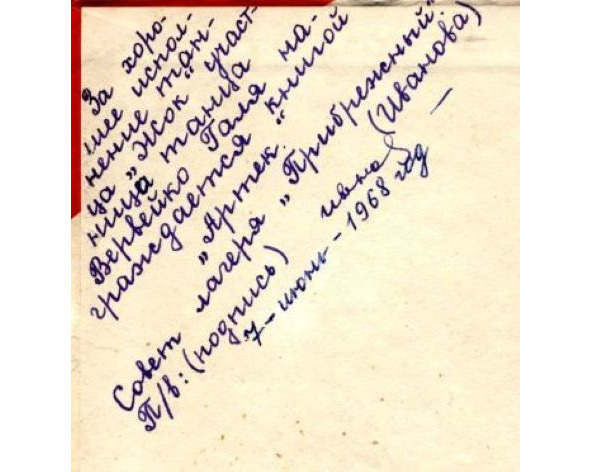 За хоро-
шее испол-
нение тан-
ца „Жок" участ-
ница танца
Вервейко Галя на-
граждается книгой
„Артек."
Совет лагеря „Прибрежный"
П/в: (подпись) (Иванова)
7 - июнь - 1968 год